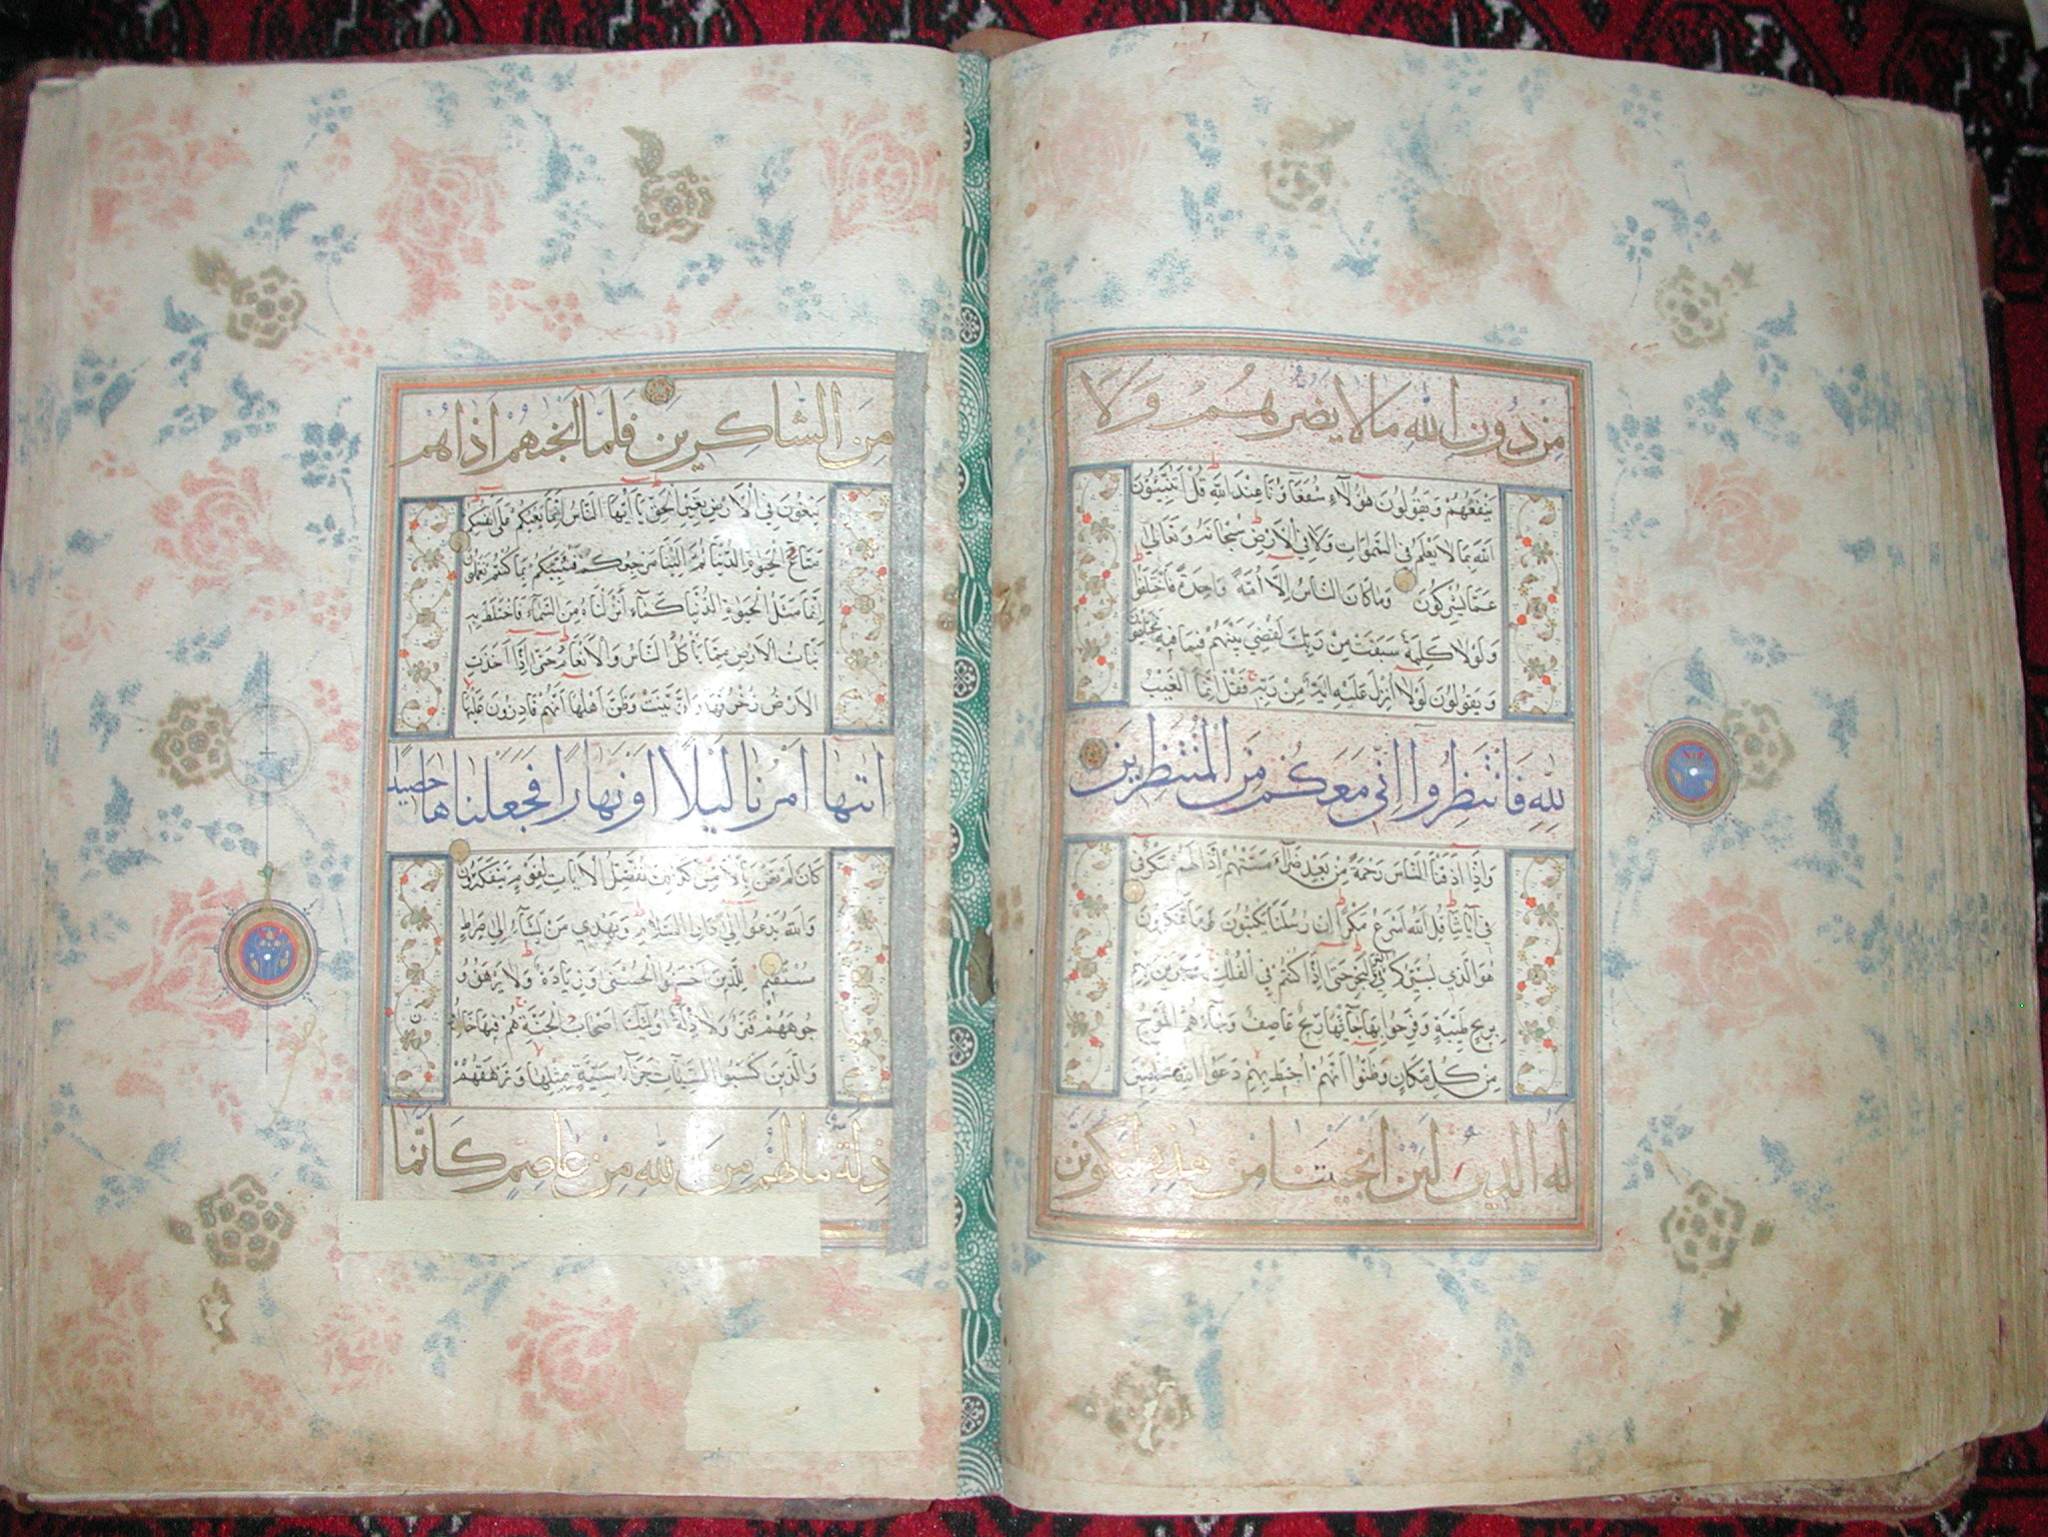 مِنْ دُونِ اللهِ مَا لَا يَضُرُّهُمْ وَلَا
يَنْفَعُهُمْ وَيَقُولُونَ هٰؤُلَاءِ شُفَعَاؤُنَا عِنْدَ اللهِ قُلْ اَتُنَبِّئُونَ
اللهَ بِمَا لَا يَعْلَمُ فِي السَّمٰوَاتِ وَلَا فِي الْاَرْضِ سُبْحَانَهُ وَتَعَالٰى
عَمَّا يُشْرِكُونَ وَمَا كَانَ النَّاسُ اِلَّا اُمَّةً وَاحِدَةً فَاخْتَلَفُوا
وَلَوْلَا كَلِمَةٌ سَبَقَتْ مِنْ رَبِّكَ لَقُضِيَ بَيْنَهُمْ فِيمَا فِيهِ يَخْتَلِفُونَ
وَيَقُولُونَ لَوْلَا اُنْزِلَ عَلَيْهِ اٰيَةٌ مِنْ رَبِّهِ فَقُلْ اِنَّمَا الْغَيْبُ
لِلّٰهِ فَانْتَظِرُوا اِنِّي مَعَكُمْ مِنَ الْمُنْتَظِرِينَ
وَاِذَا اَذَقْنَا النَّاسَ رَحْمَةً مِنْ بَعْدِ ضَرَّاءَ مَسَّتْهُمْ اِذَا لَهُمْ مَكْرٌ فِي
فِي اٰيَاتِنَا قُلِ اللهُ اَسْرَعُ مَكْرًا اِنَّ رُسُلَنَا يَكْتُبُونَ مَا تَمْكُرُونَ
هُوَ الَّذِي يُسَيِّرُكُمْ فِي الْبَرِّ وَالْبَحْرِ حَتّٰى اِذَا كُنْتُمْ فِي الْفُلْكِ وَجَرَيْنَ بِهِمْ
بِرِيحٍ طَيِّبَةٍ وَفَرِحُوا بِهَا جَاءَتْهَا رِيحٌ عَاصِفٌ وَجَاءَهُمُ الْمَوْجُ
مِنْ كُلِّ مَكَانٍ وَظَنُّوا اَنَّهُمْ اُحِيطَ بِهِمْ دَعَوُا اللهَ مُخْلِصِينَ
لَهُ الدِّينَ لَئِنْ اَنْجَيْتَنَا مِنْ هٰذِهِ لَنَكُونَنَّ
مِنَ الشَّاكِرِينَ فَلَمَّا اَنْجٰهُمْ اِذَا هُمْ
يَبْغُونَ فِي الْاَرْضِ بِغَيْرِ الْحَقِّ يَا اَيُّهَا النَّاسُ اِنَّمَا بَغْيُكُمْ عَلٰى اَنْفُسِكُمْ
مَتَاعَ الْحَيٰوةِ الدُّنْيَا ثُمَّ اِلَيْنَا مَرْجِعُكُمْ فَنُنَبِّئُكُمْ بِمَا كُنْتُمْ تَعْمَلُونَ
اِنَّمَا مَثَلُ الْحَيٰوةِ الدُّنْيَا كَمَاءٍ اَنْزَلْنَاهُ مِنَ السَّمَاءِ فَاخْتَلَطَ بِهِ
نَبَاتُ الْاَرْضِ مِمَّا يَأْكُلُ النَّاسُ وَالْاَنْعَامُ حَتّٰى اِذَا اَخَذَتِ
الْاَرْضُ زُخْرُفَهَا وَازَّيَّنَتْ وَظَنَّ اَهْلُهَا اَنَّهُمْ قَادِرُونَ عَلَيْهَا
اَتٰيهَا اَمْرُنَا لَيْلًا اَوْ نَهَارًا فَجَعَلْنَاهَا حَصِيدًا
كَاَنْ لَمْ تَغْنَ بِالْاَمْسِ كَذٰلِكَ نُفَصِّلُ الْاٰيَاتِ لِقَوْمٍ يَتَفَكَّرُونَ
وَاللهُ يَدْعُوا اِلٰى دَارِ السَّلَامِ وَيَهْدِي مَنْ يَشَاءُ اِلٰى صِرَاطٍ
مُسْتَقِيمٍ لِلَّذِينَ اَحْسَنُوا الْحُسْنٰى وَزِيَادَةٌ وَلَا يَرْهَقُ وُ
جُوهَهُمْ قَتَرٌ وَلَا ذِلَّةٌ اُولٰئِكَ اَصْحَابُ الْجَنَّةِ هُمْ فِيهَا خَالِدُونَ
وَالَّذِينَ كَسَبُوا السَّيِّاٰتِ جَزَاءُ سَيِّئَةٍ بِمِثْلِهَا وَتَرْهَقُهُمْ
ذِلَّةٌ مَا لَهُمْ مِنَ اللهِ مِنْ عَاصِمٍ كَاَنَّمَا